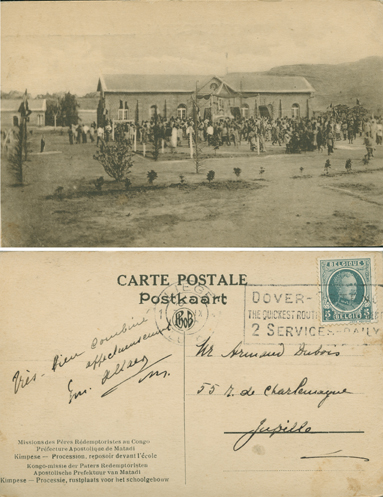 CARTE POSTALE
Postkaart
BELGIQUE
5 BELGIË 5
DOVER-
THE QUICKEST ROUT
2 SERVICES DAILY
Très
affectueusement
Mr Armand Dubois
55 r. de Charlemagne
Jupille
Missions des Pères Rédemptoristes au Congo
Préfecture Apostolique de Matadi
Kimpese — Procession, reposoir devant l'école
Kongo-missie der Paters Redemptoristen
Apostolische Prefektuur van Matadi
Kimpese — Processie, rustplaats voor het schoolgebouw